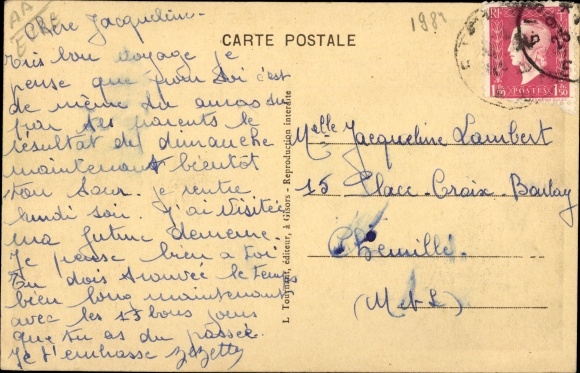 AA
E
1984
CARTE POSTALE
RF
1F50 POSTES 1F50
Chère Jacqueline
Très bon voyage je
pense que pour toi c'est
de même tu auras su
par tes parents le
résultat du dimanche
maintenant bientôt
ton tour. je rentre
lundi soir. J'ai visitée
ma future demeure.
Je pense bien a toi.
Tu dois trouvée le temps
bien long maintenant
avec les 15 bons jours
que tu as du passée.
Je t'embrasse Zezette
L. Tournant, éditeur, à Gisors - Reproduction interdite
Melle Jacqueline Lambert
15 Place Croix Boulay
Chemillé.
(M et L)